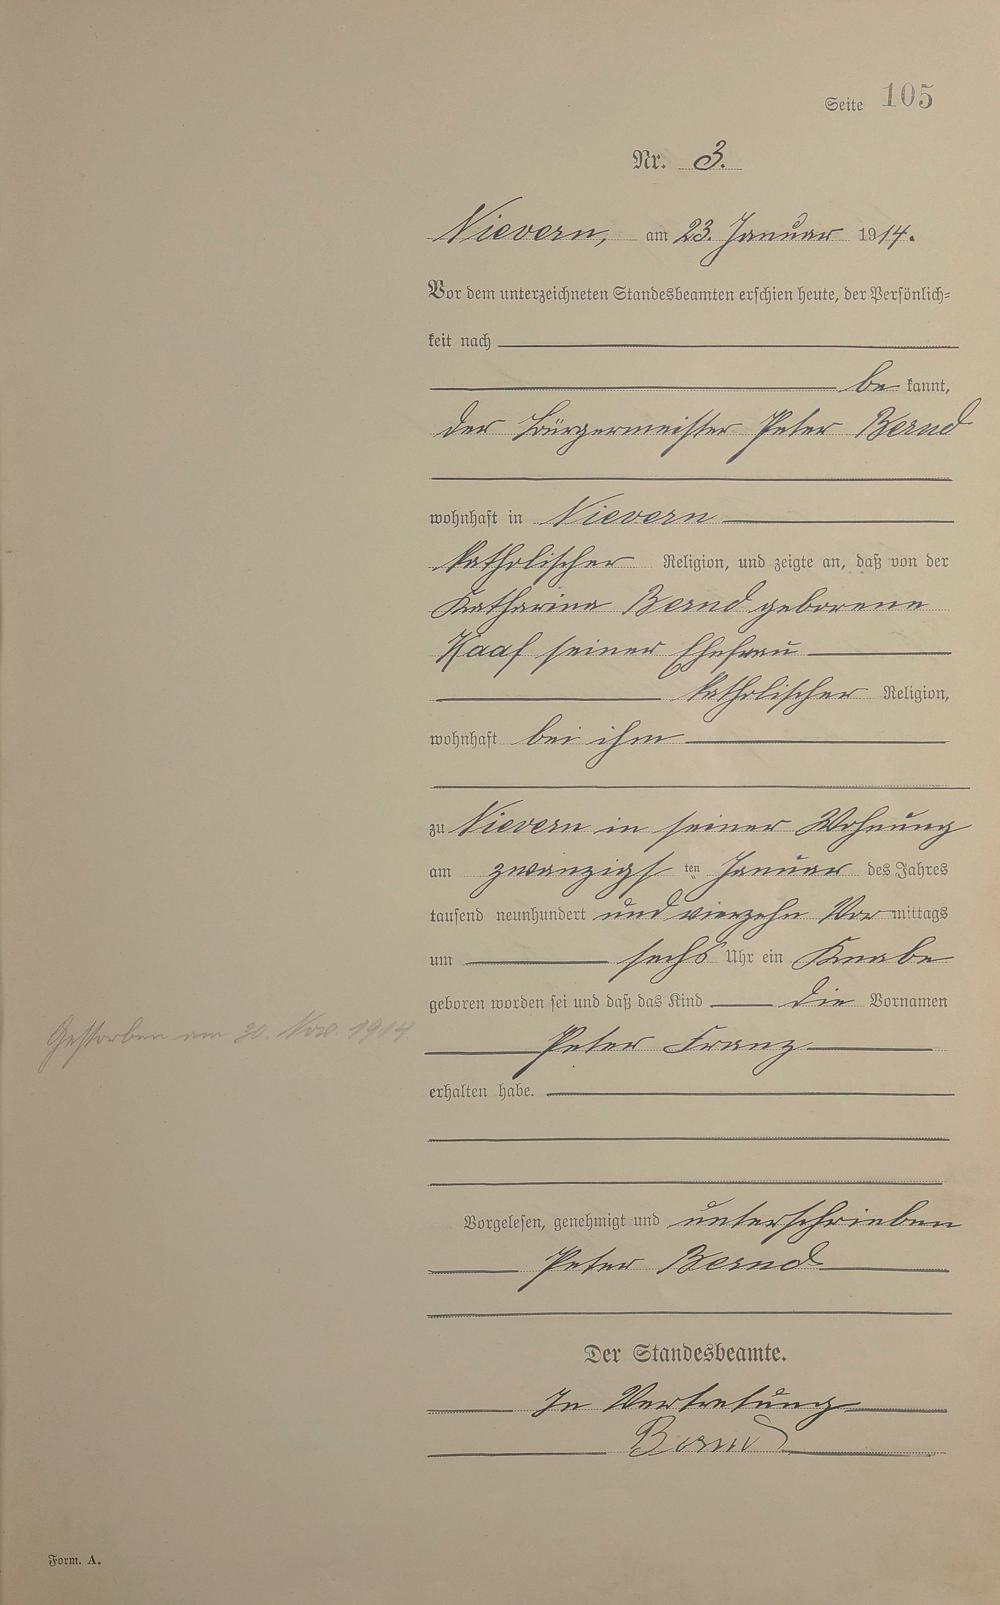 Seite 105
Nr. 3.
Nievern, am 23. Januar 1914.
Vor dem unterzeichneten Standesbeamten erschien heute, der Persönlich-
keit nach
be kannt,
der Bürgermeister Peter Bernd
wohnhaft in Nievern
katholischer Religion, und zeigte an, daß von der
Katharina Bernd geborene
Kaaf seiner Ehefrau
katholischer Religion,
wohnhaft bei ihm
zu Nievern in seiner Wohnung
am zwanzigs ten Januar des Jahres
tausend neunhundert und vierzehn Vor mittags
um sechs Uhr ein Knabe
geboren worden sei und daß das Kind die Vornamen
Gestorben am 30. Nov. 1914.
Peter Franz
erhalten habe.
Vorgelesen, genehmigt und unterschrieben
Peter Bernd
Der Standesbeamte.
In Vertretung
Form. A.